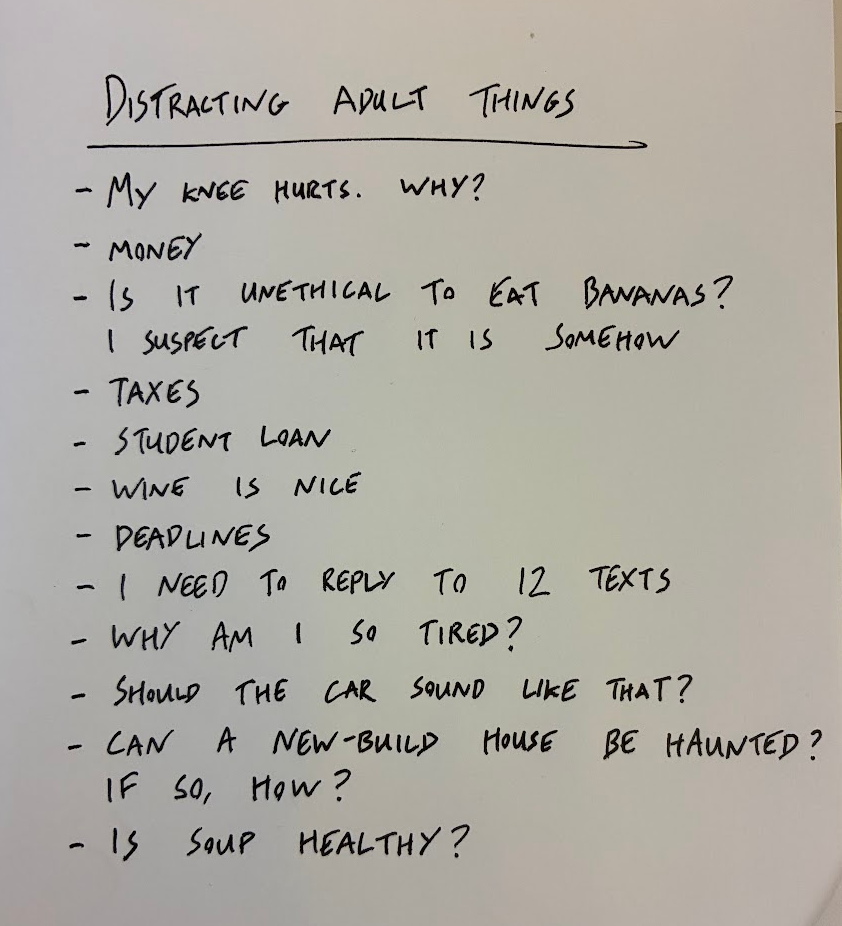 DISTRACTING ADULT THINGS
- MY KNEE HURTS. WHY?
- MONEY
- IS IT UNETHICAL TO EAT BANANAS?
I SUSPECT THAT IT IS SOMEHOW
- TAXES
- STUDENT LOAN
- WINE IS NICE
- DEADLINES
- I NEED TO REPLY TO 12 TEXTS
- WHY AM I SO TIRED?
- SHOULD THE CAR SOUND LIKE THAT?
- CAN A NEW-BUILD HOUSE BE HAUNTED?
IF SO, HOW?
- IS SOUP HEALTHY?